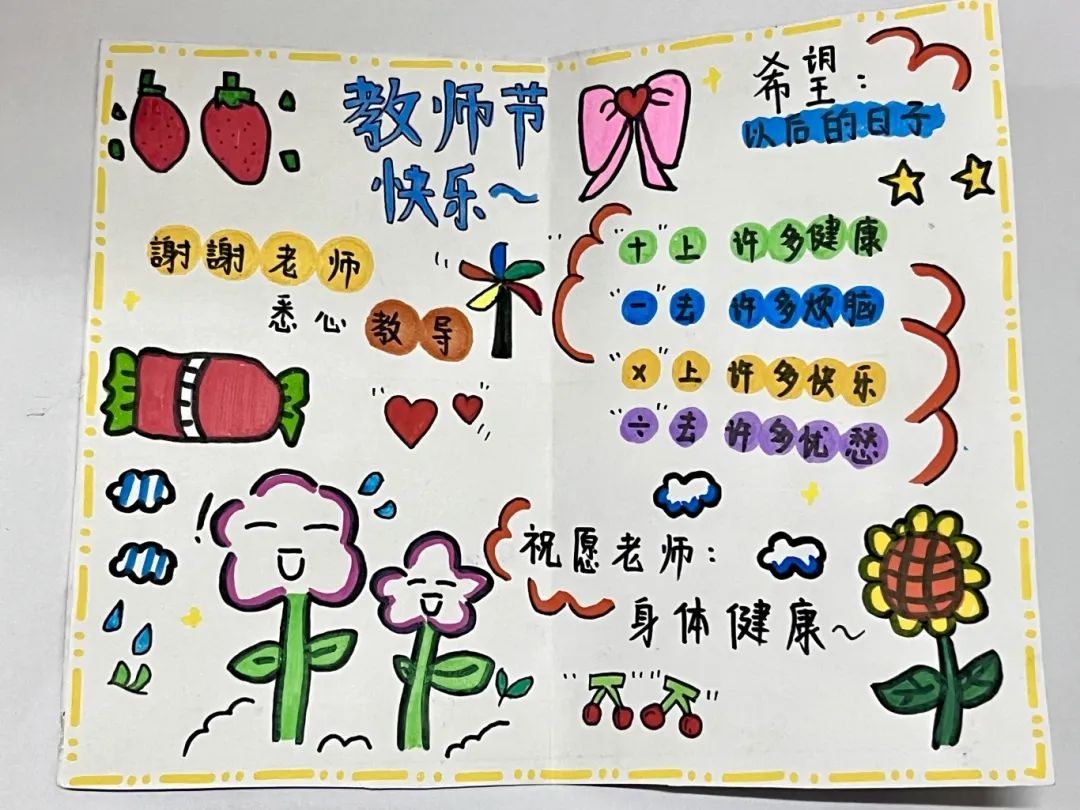 教师节
快乐~
謝謝老师
悉心教导
希望:
以后的日子
"+"上 许多健康
"-"去 许多烦脑
"×"上 许多快乐
"÷"去 许多忧愁
祝愿老师:
身体健康~